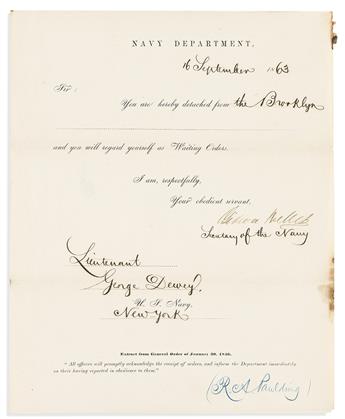 NAVY DEPARTMENT,
16 September 1863
Sir:
You are hereby detached from the Brooklyn
and you will regard yourself as Waiting Orders.
I am, respectfully,
Your obedient servant,
Gideon Welles
Secretary of the Navy
Lieutenant
George Dewey,
U. S. Navy,
New York
Extract from General Order of January 30, 1856.
"All officers will promptly acknowledge the receipt of orders, and inform the Department immediately
on their having reported in obedience to them."
(R A Paulding)